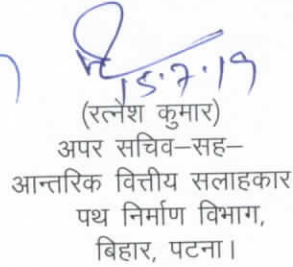 15.7.19
(रत्नेश कुमार)
अपर सचिव–सह–
आन्तरिक वित्तीय सलाहकार
पथ निर्माण विभाग,
बिहार, पटना।